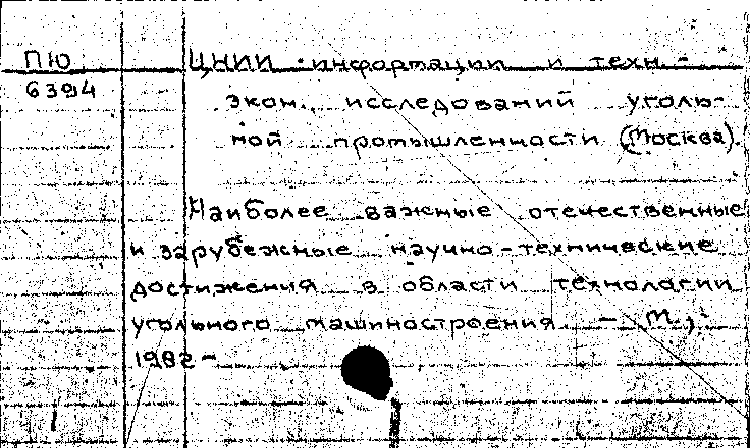 ПЮ ЦНИИ информации и техн.-
6394 экон. исследований уголь-
ной промышленности (Москва).
Наиболее важные отечественные
и зарубежные научно-технические
достижения в области технологии
угольного машиностроения. - М.,
1982-